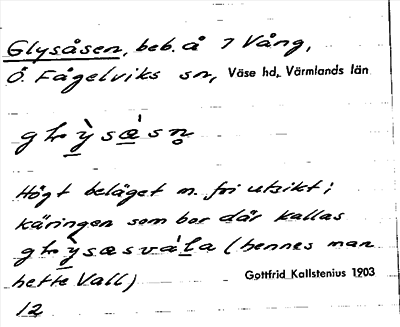 Glysåsen, beb. å 7 Vång,
Ö. Fågelviks sn, Väse hd, Värmlands län
Högt beläget m. fri utsikt;
käringen som bor där kallas
(hennes man
hette Vall)
Gottfrid Kallstenius 1903
12